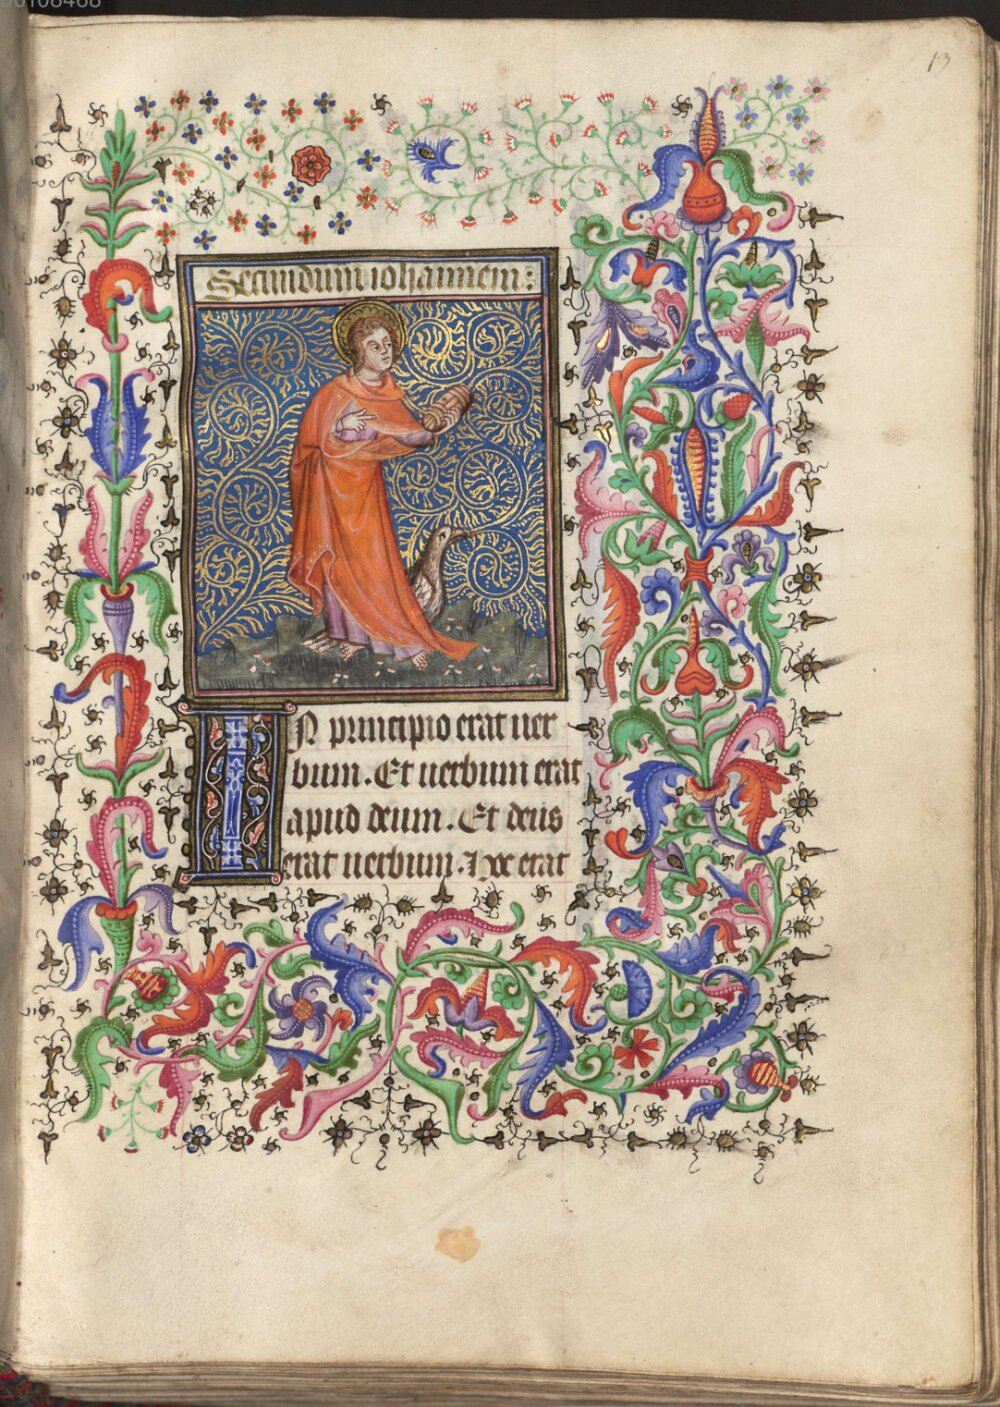 00108468
13
Secundum iohannem:
IN principio erat uer
bum. Et uerbum erat
apud deum. Et deus
erat uerbum. Hoc erat